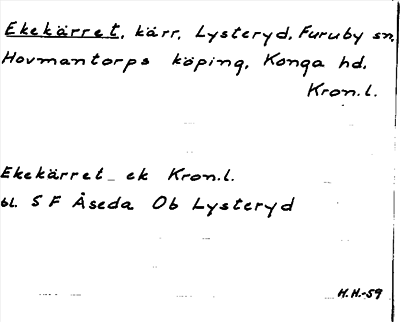 Ekekärret, kärr, Lysteryd, Furuby sn,
Hovmantorps köping, Konga hd,
Kron.l.
Ekekärret_ ek Kron.l.
bl. 5 F Åseda Ob Lysteryd
H.H.-59